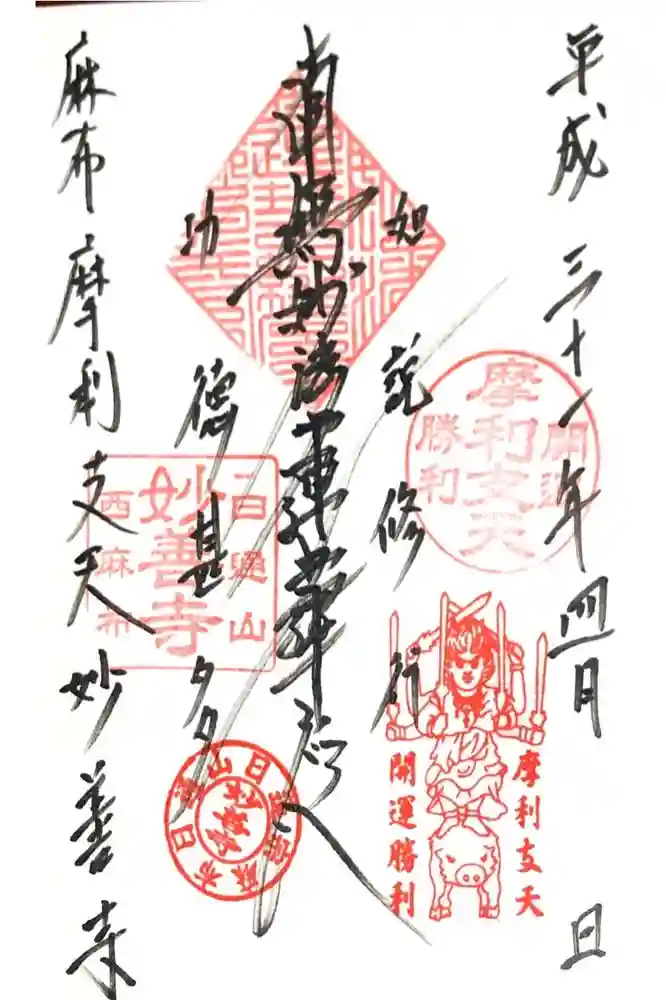 平成三十一年四月 日
如説修行
南無妙法蓮華経
功德甚多
麻布摩利支天妙善寺
開運
摩利支天
勝利
摩利支天
開運勝利
日通山
妙善寺
西麻布